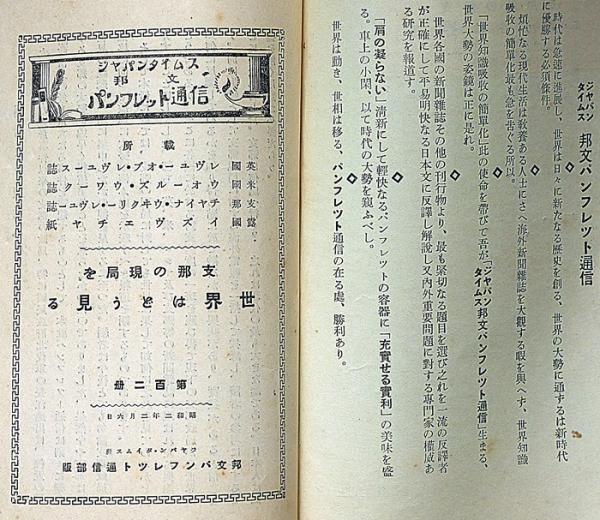 ジャパン
タイムス 邦文パンフレツト通信
時代は急速に進展し、世界は日々に新たなる歴史を創る、世界の大勢に通ずるは新時代
に優勝する必須條件。
◇
煩忙なる現代生活は敎養ある人士にさへ海外新聞雜誌を大觀する暇を與へず、世界知識
吸收の簡單化最も急を吿ぐる所以。
◇
「世界知識吸收の簡單化」此の使命を帶びて吾が「ジャパンタイムス邦文パンフレツト通信」生まる、
世界大勢の姿鏡は正に是れ。
◇
世界各國の新聞雜誌その他の刊行物より、最も緊切なる題目を選び之れを一流の反譯者
が正確にして平易明快なる日本文に反譯し解說し又內外重要問題に對する專門家の權威あ
る硏究を報道す。
◇
「肩の凝らない」淸新にして輕快なるパンフレツトの容器に「充實せる實利」の美味を盛
る。車上の小閑、以て時代の大勢を窺ふべし。
◇
世界は動き、世相は移る、パンフレツト通信の在る處、勝利あり。
ジャパンタイムス
邦文
パンフレット通信
所載
英國 レヴユー・オブ・レヴユース誌
米國 ウオールズ・ウワーク誌
支那 チヤイナ・ウキクリー・レヴユー誌
露國 イズヴエチヤ紙
支那の現局を
世界はどう見る
第百二冊
昭和二年二月六日
邦文パンフレツト通信部版